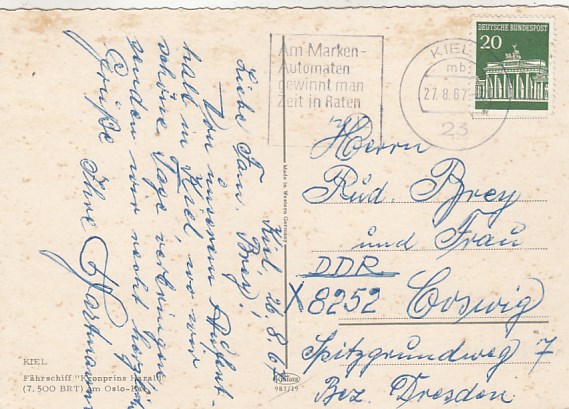 Kiel, 26.8.67
Liebe Fam. Brey!
Von unserem Aufent-
halt in Kiel, wo wir
schöne Tage verbringen
senden wir recht herzliche
Grüße Ihre Hartmann
Am Marken-
Automaten
gewinnt man
Zeit in Raten
KIEL
mb
27.8.67
23
DEUTSCHE BUNDESPOST
20
Herrn
Rud. Brey
und Frau
DDR
X 8252 Coswig
Spitzgrundweg 7
Bez. Dresden
Made in Western Germany
KIEL
Fährschiff "Kronprins Harald"
(7.500 BRT) am Oslo-Kai
983/19